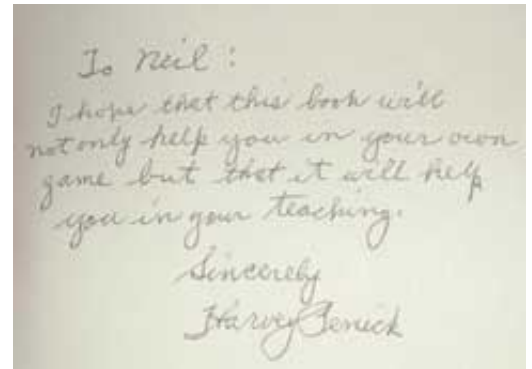 To Neil:
I hope that this book will
not only help you in your own
game but that it will help
you in your teaching.
Sincerely
Harvey Penick